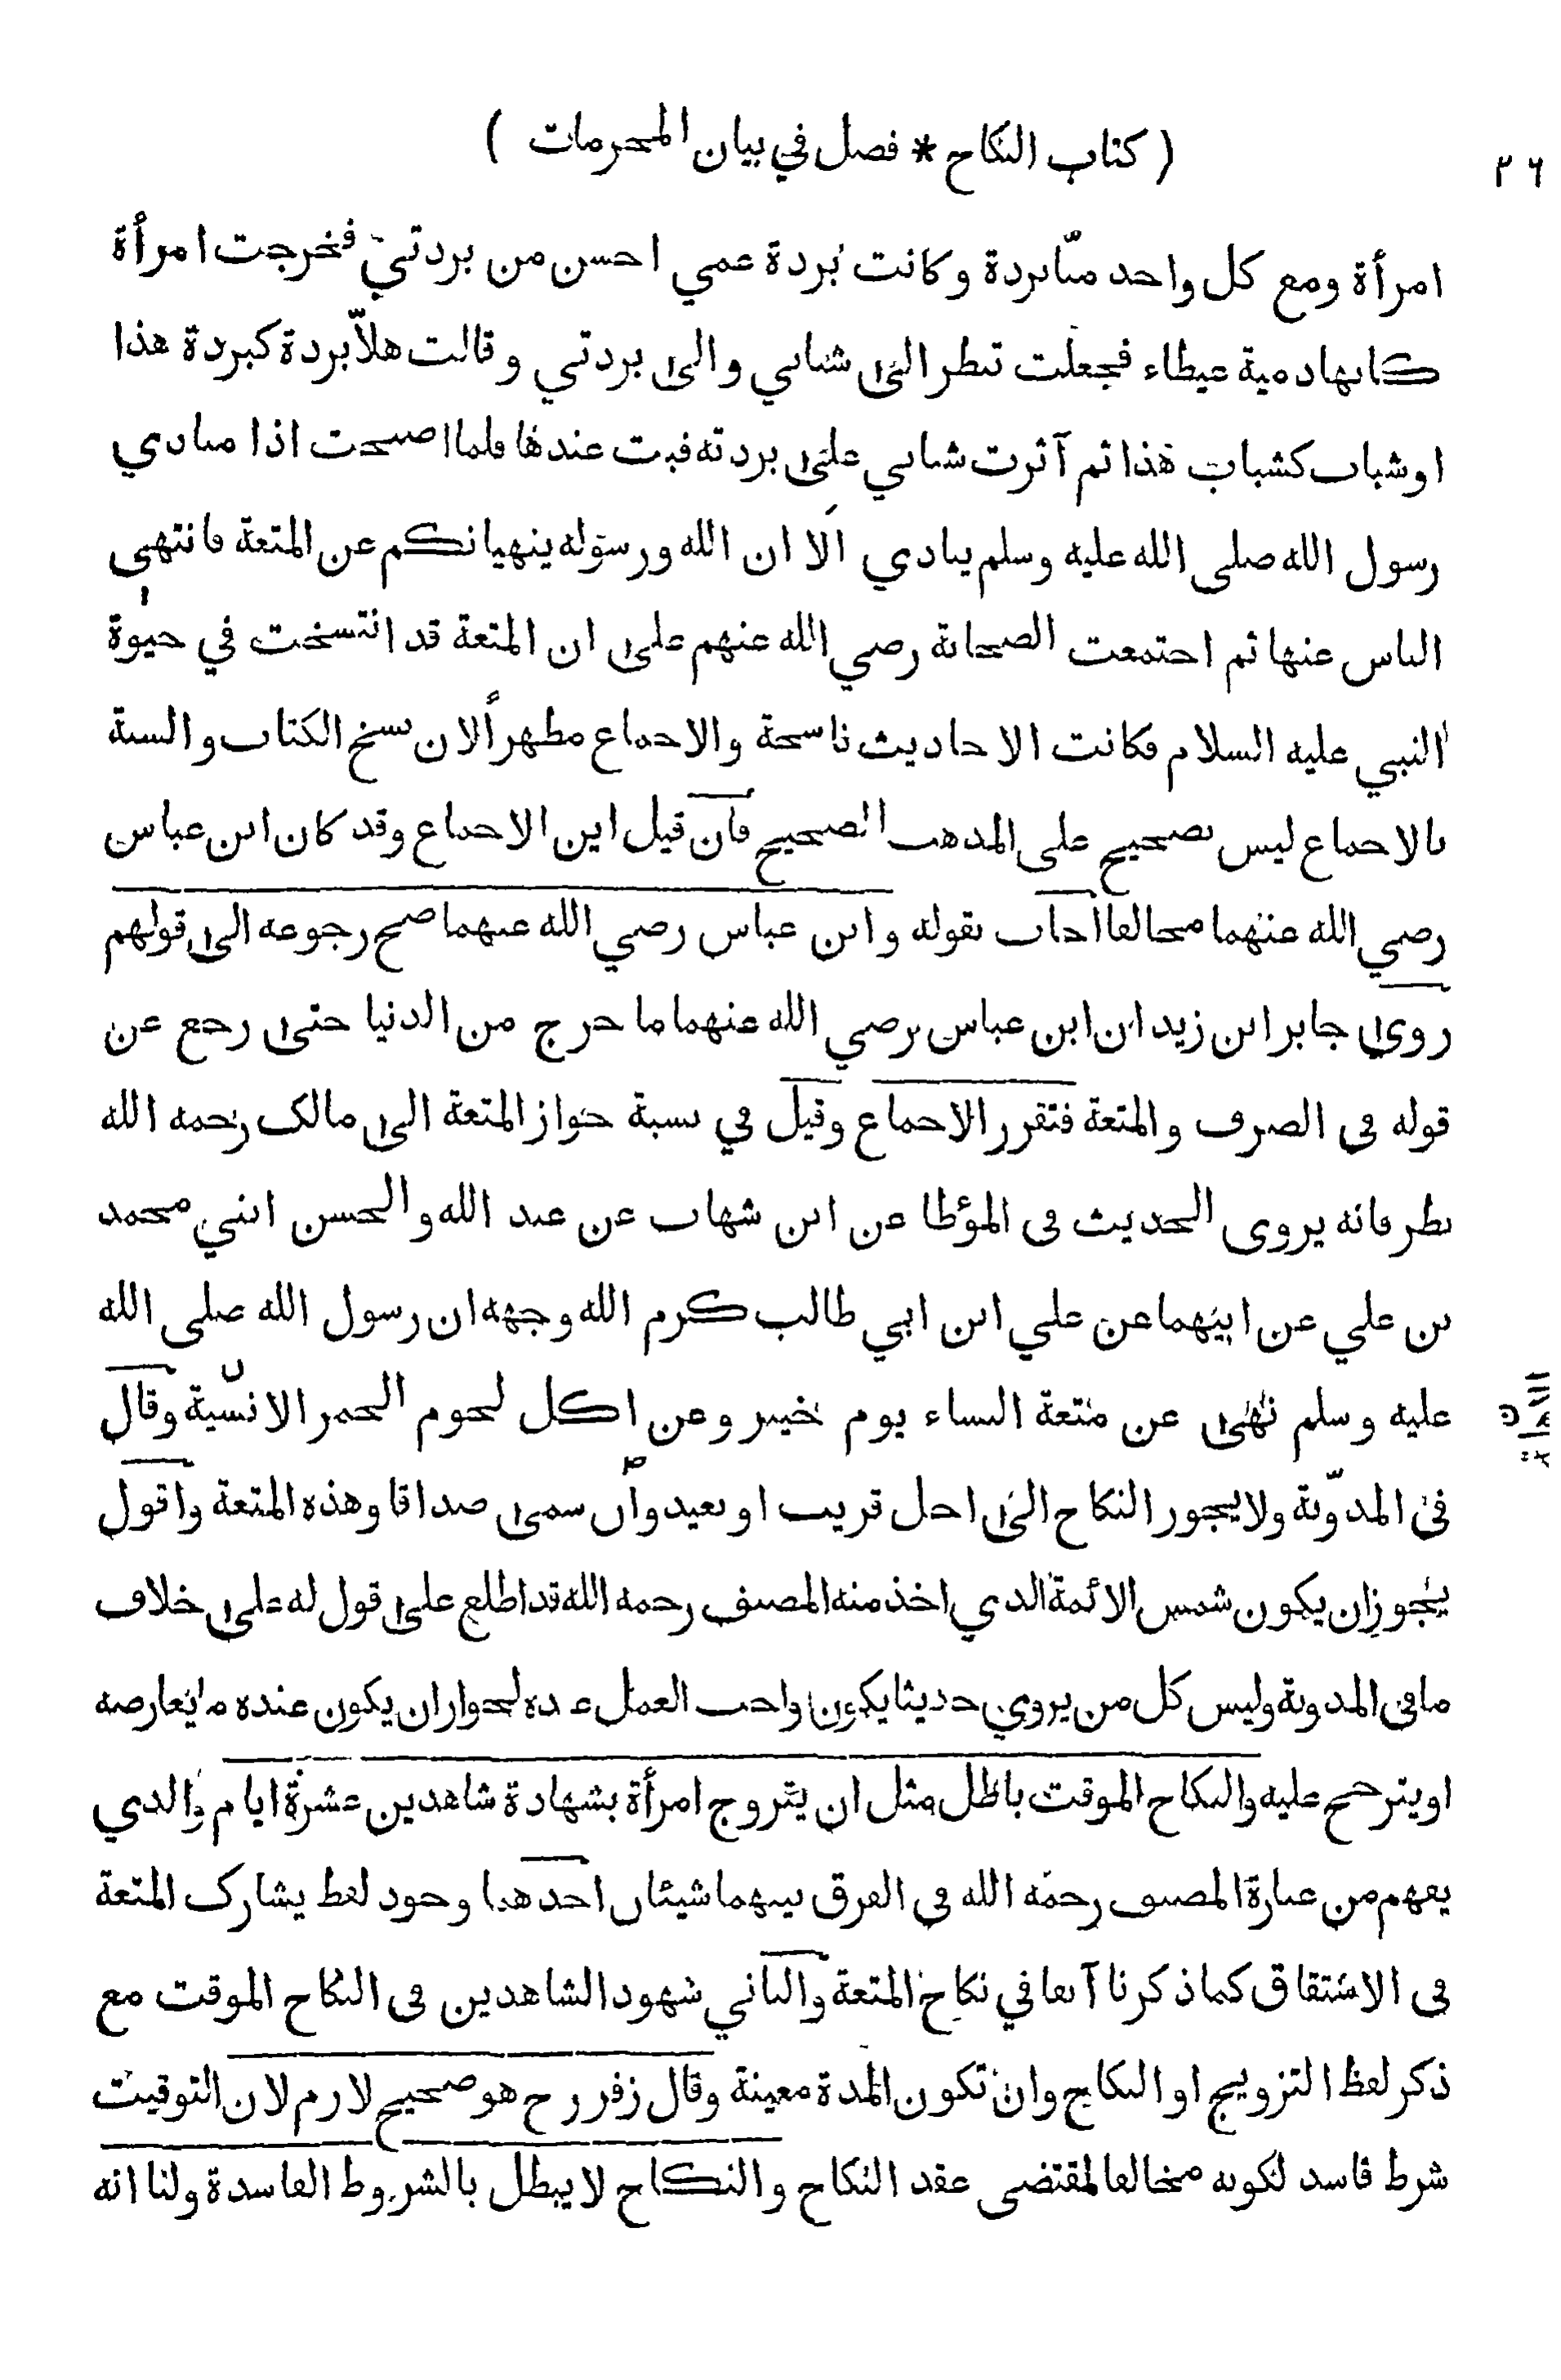 ( كتاب النكاح * فصل في بيان المحرمات )
٢٦
امرأة ومع كل واحد منّا بردة وكانت بُردة عمي احسن من بردتي فخرجت امرأة
كانها دمية عيطاء فجعلت تنظر الى شبابي والى بردتي وقالت هلاّ بردة كبردة هذا
او شباب كشباب هذا ثم آثرت شبابي على بردته فبت عندها فلما اصبحت اذا منادي
رسول الله صلى الله عليه وسلم ينادي اَلا ان الله ورسوله ينهيانكم عن المتعة فانتهى
الناس عنها ثم اجتمعت الصحابة رضي الله عنهم على ان المتعة قد انتسخت في حيوة
النبي عليه السلام فكانت الاحاديث ناسخة والاجماع مظهراً لان نسخ الكتاب والسنة
بالاجماع ليس بصحيح على المذهب الصحيح فان قيل اين الاجماع وقد كان ابن عباس
رضي الله عنهما مخالفا اجاب بقوله وابن عباس رضي الله عنهما صح رجوعه الى قولهم
روى جابر ابن زيد ان ابن عباس رضي الله عنهما ما خرج من الدنيا حتى رجع عن
قوله في الصرف والمتعة فتقرر الاجماع وقيل في نسبة جواز المتعة الى مالك رحمه الله
نظر فانه يروى الحديث في المؤطا عن ابن شهاب عن عبد الله والحسن ابني محمد
بن علي عن ابيهما عن علي ابن ابي طالب كرم الله وجهه ان رسول الله صلى الله
عليه وسلم نهى عن متعة النساء يوم خيبر وعن اكل لحوم الحمر الانسّية وقال
في المدوّنة ولا يجوز النكاح الى اجل قريب او بعيد وان سمى صداقا وهذه المتعة واقول
يجوز ان يكون شمس الائمة الذي اخذ منه المصنف رحمه الله قد اطلع على قول له على خلاف
ما في المدونة وليس كل من يروي حديثا يكون واجب العمل عنده لجواز ان يكون عنده ما يعارضه
او يترجح عليه والنكاح الموقت باطل مثل ان يتزوج امرأة بشهادة شاهدين عشرة ايام والذي
يفهم من عبارة المصنف رحمه الله في الفرق بينهما شيئان احدهما وجود لفظ يشارك المتعة
في الاشتقاق كما ذكرنا آنفا في نكاح المتعة والثاني شهود الشاهدين في النكاح الموقت مع
ذكر لفظ التزويج او النكاح وان تكون المدة معينة وقال زفر رح هو صحيح لازم لان التوقيت
شرط فاسد لكونه مخالفا لمقتضى عقد النكاح والنكاح لا يبطل بالشروط الفاسدة ولنا انه